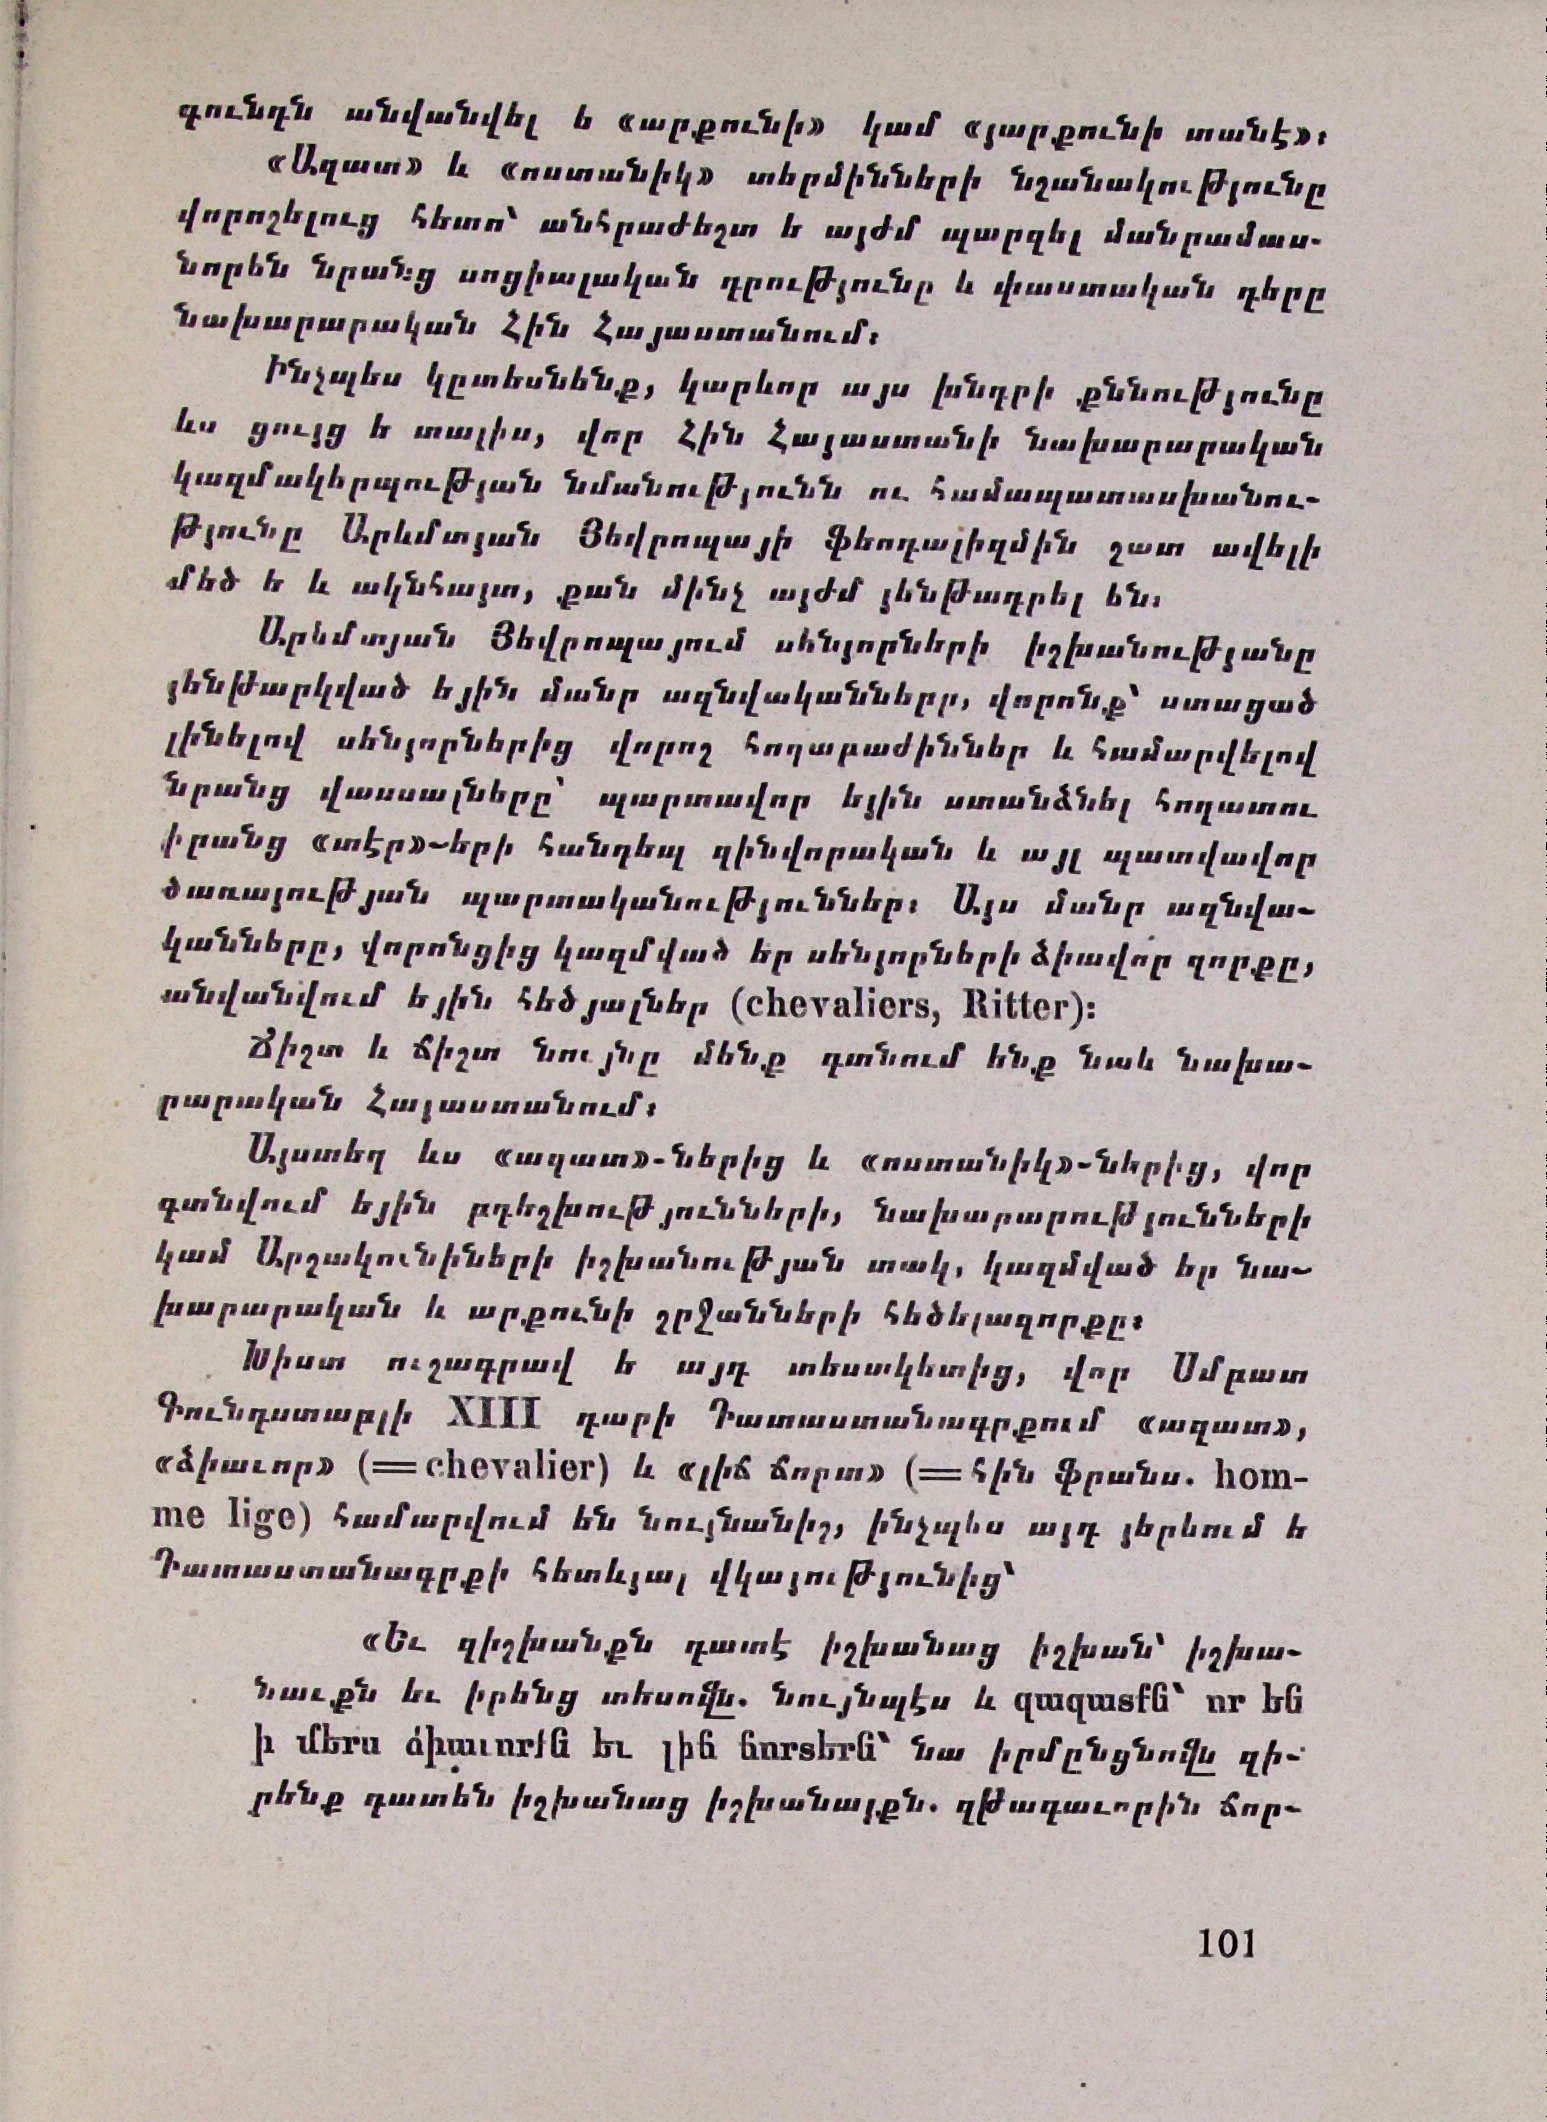 գունդն անվանվել ե «արքունի» կամ «յարքունի տանէ»։
«Ազատ» և «ոստանիկ» տերմինների նշանակությունը
վորոշելուց հետո՝ անհրաժեշտ ե այժմ պարզել մանրամաս-
նորեն նրանց սոցիալական դրությունը և փաստական դերը
նախարարական Հին Հայաստանում։
Ինչպես կըտեսնենք, կարևոր այս խնդրի քննությունը
ևս ցույց ե տալիս, վոր Հին Հայաստանի նախարարական
կազմակերպության նմանությունն ու համապատասխանու-
թյունը Արևմտյան Յեվրոպայի ֆեոդալիզմին շատ ավելի
մեծ ե և ակնհայտ, քան մինչ այժմ յենթադրել են։
Արևմտյան Յեվրոպայում սենյորների իշխանությանը
յենթարկված եյին մանր ազնվականները, վորոնք՝ ստացած
լինելով սենյորներից վորոշ հողաբաժիններ և համարվելով
նրանց վասսալները՝ պարտավոր եյին ստանձնել հողատու
իրանց «տէր»-երի հանդեպ զինվորական և այլ պատվավոր
ծառայության պարտականություններ։ Այս մանր ազնվա-
կանները, վորոնցից կազմված եր սենյորների ձիավոր զորքը,
անվանվում եյին հեծյալներ (chevaliers, Ritter)։
Ճիշտ և ճիշտ նույնը մենք գտնում ենք նաև նախա-
րարական Հայաստանում։
Այստեղ ևս «ազատ»-ներից և «ոստանիկ»-ներից, վոր
գտնվում եյին բդեշխությունների, նախարարությունների
կամ Արշակունիների իշխանության տակ, կազմված եր նա-
խարարական և արքունի շրջանների հեծելազորքը։
Խիստ ուշագրավ ե այդ տեսակետից, վոր Սմբատ
Գունդստաբլի XIII դարի Դատաստանագրքում «ազատ»,
«ձիաւոր» (=chevalier) և «լիճ ճորտ» (=հին ֆրանս. hom-
me lige) համարվում են նույնանիշ, ինչպես այդ յերևում ե
Դատաստանագրքի հետևյալ վկայությունից՝
«Եւ զիշխանքն դատէ իշխանաց իշխան՝ իշխա-
նաւքն եւ իրենց տեսովն. նույնպէս և զազատքն՝ որ են
ի մերս ձիաւորքն եւ լիճ ճորտերն՝ նա իրմընցնովն զի-
րենք դատեն իշխանաց իշխանայքն. զթագաւորին ճոր-
101